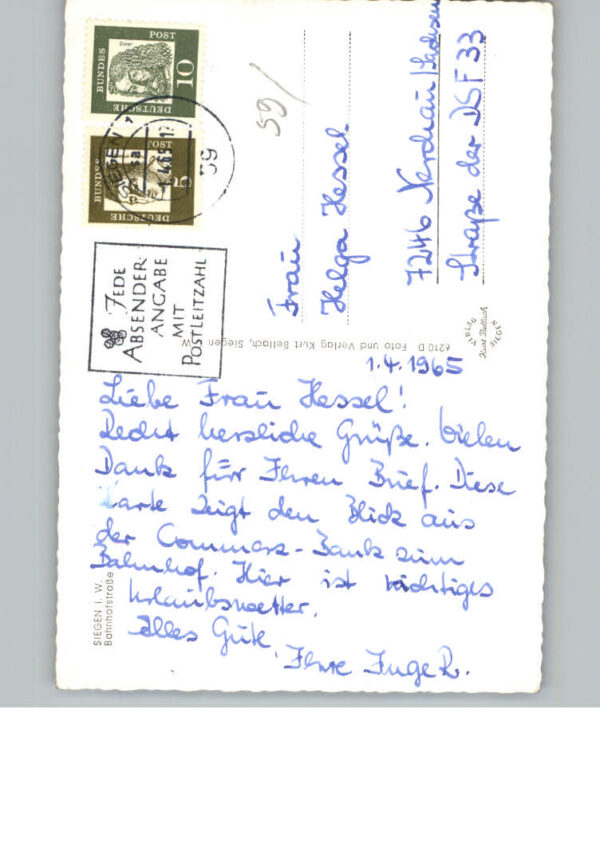 DEUTSCHE BUNDESPOST
Dürer
10
DEUTSCHE BUNDESPOST
5
SIEGEN 1
59
JEDE
ABSENDER-
ANGABE
MIT
POSTLEITZAHL
59/
Frau
Helga Hessel
7246 Nerchau/Sachsen
Straße der DSF 33
VERLAG
Kurt Bellach
SIEGEN
6210 D Foto und Verlag Kurt Bellach, Siegen i. W.
1.4.1965
Liebe Frau Hessel!
Recht herzliche Grüße. Vielen
Dank für Ihren Brief. Diese
Karte zeigt den Blick aus
der Commerz-Bank zum
Bahnhof. Hier ist richtiges
Urlaubswetter.
Alles Gute
Ihre Inge R.
SIEGEN i. W.
Bahnhofstraße